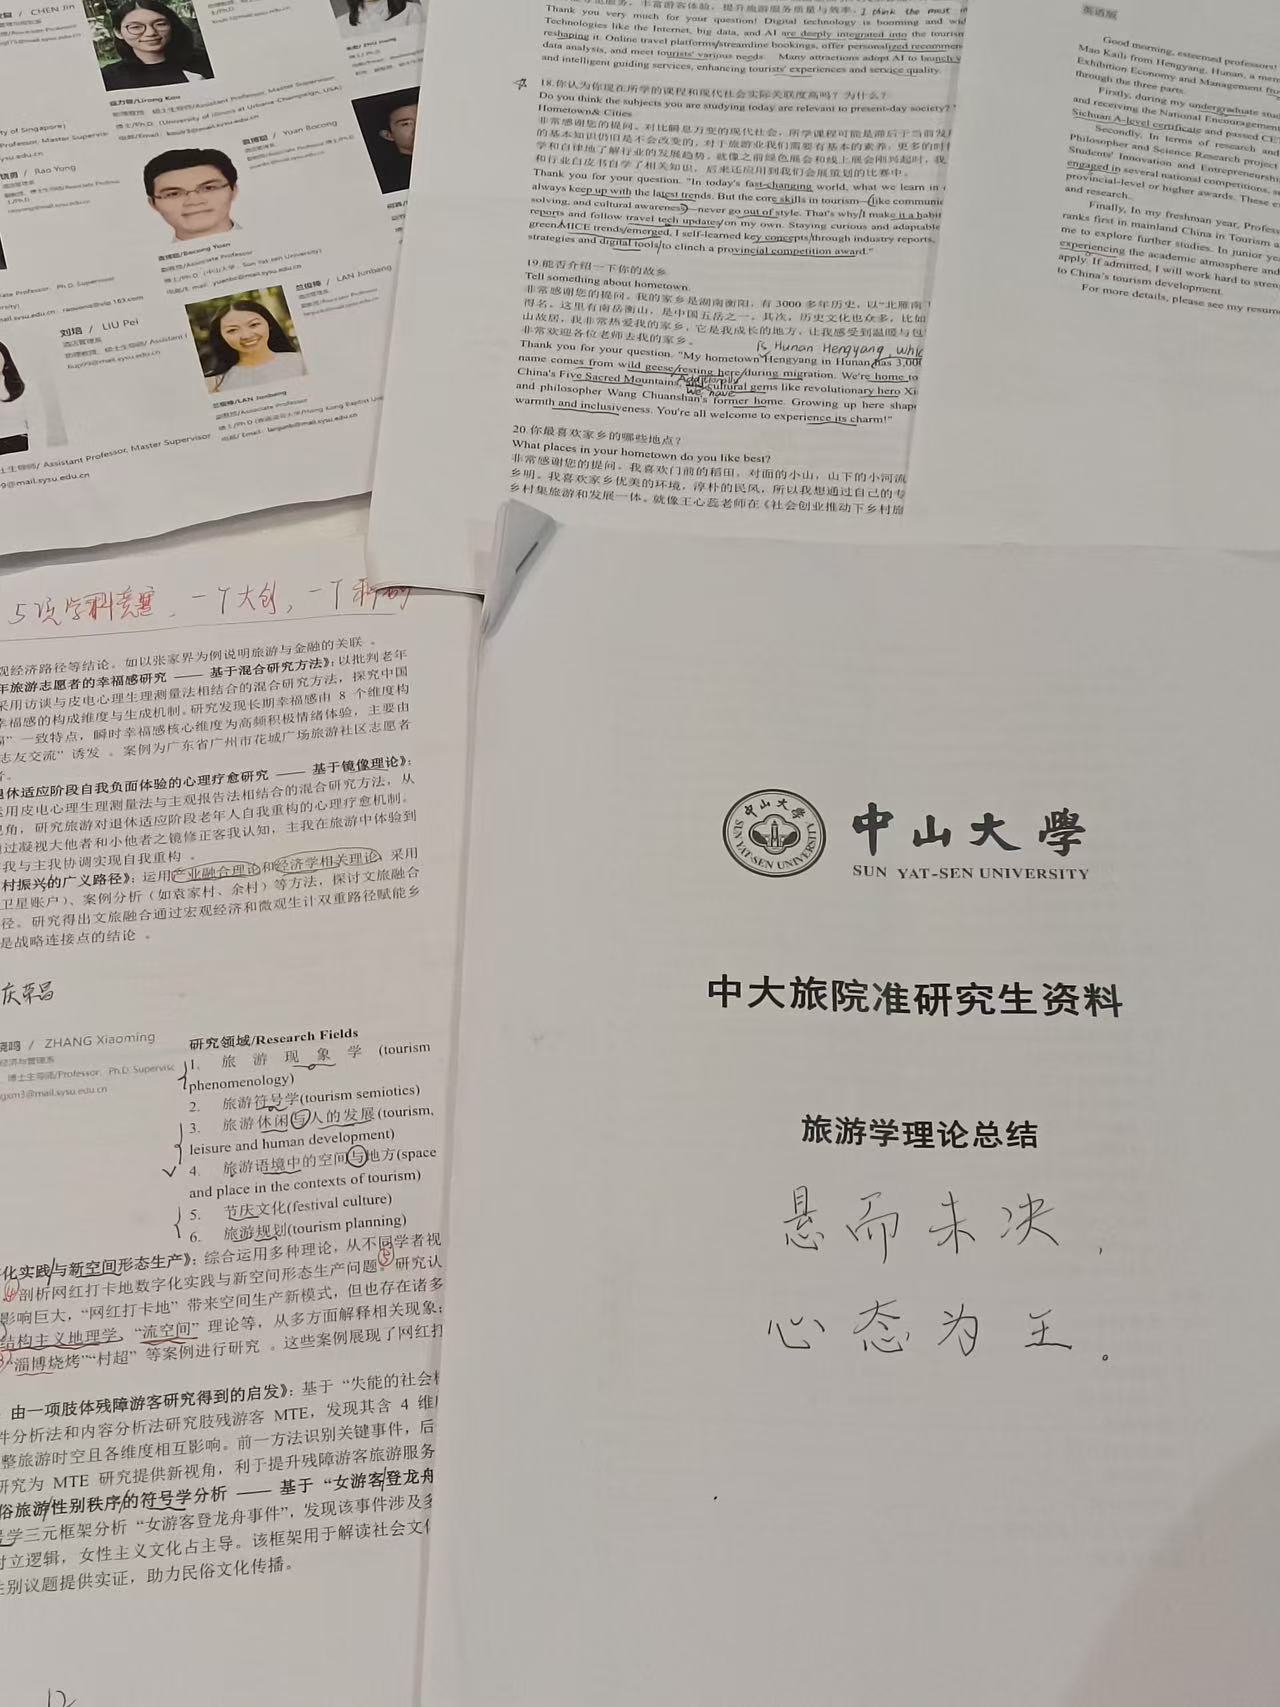 CHEN Jin
寇力容/Lirong Kou
助理教授、硕士生导师/Assistant Professor, Master Supervisor
博士/Ph.D. (University of Illinois at Urbana Champaign, USA)
y of Singapore)
Professor, Master Supervis
sysu.edu.cn
饶勇 / Rao Yong
酒店管理系
袁博聪 / Yuan Bocong
酒店管理系
袁博聪/Bocong Yuan
副教授/Associate Professor
博士/Ph.D. (中山大学, Sun Yat-sen University)
ate Professor, Ph.D. Supervisor
raoyong@vip.163.com
刘培 / LIU Pei
酒店管理系
兰俊梅 / LAN Junbeng
酒店管理系
兰俊梅/LAN Junbeng
副教授/Associate Professor
电邮/ Email: lanjunb@mail.sysu.edu.cn
士生导师/ Assistant Professor, Master Supervisor
9@mail.sysu.edu.cn
丰富游客体验，提升旅游服务质量与效率。I think the most
Thank you very much for your question! Digital technology is booming and wid
Technologies like the Internet, big data, and AI are deeply integrated into the tourism
reshaping it. Online travel platforms/streamline bookings, offer personalized recommen
data analysis, and meet tourists' various needs. Many attractions adopt AI to launch v
and intelligent guiding services, enhancing tourists' experiences and service quality.
18.你认为你现在所学的课程和现代社会实际关联度高吗？为什么？
Do you think the subjects you are studying today are relevant to present-day society?
Hometown& Cities
非常感谢您的提问。对比瞬息万变的现代社会，所学课程可能是滞后于当前发
的基本知识仍旧是不会改变的，对于旅游业我们需要有基本的素养，更多的时
学和自律地了解行业的发展趋势。就像之前绿色展会和线上展会刚兴起时，我
和行业白皮书自学了相关知识，后来还应用到我们会展策划的比赛中。
Thank you for your question. "In today's fast-changing world, what we learn in
always keep up with the latest trends. But the core skills in tourism—(like communic
solving, and cultural awareness)—never go out of style. That's why/I make it a habit
reports and follow travel tech updates/on my own. Staying curious and adaptable
green MICE trends/emerged, I self-learned key concepts/through industry reports,
strategies and digital tools/to clinch a provincial competition award."
19.能否介绍一下你的故乡
Tell something about hometown.
非常感谢您的提问。我的家乡是湖南衡阳，有 3000 多年历史，以“北雁南
得名。这里有南岳衡山，是中国五岳之一。其次，历史文化也众多，比如
山故居，我非常热爱我的家乡，它是我成长的地方，让我感受到温暖与包
非常欢迎各位老师去我的家乡。
is Hunan Hengyang, whic
Thank you for your question. "My hometown Hengyang in Hunan has 3,00
name comes from wild geese/resting here/during migration. We're home to
Additionally
China's Five Sacred Mountains, and cultural gems like revolutionary hero Xi
we have
and philosopher Wang Chuanshan's former home. Growing up here shape
warmth and inclusiveness. You're all welcome to experience its charm!"
20.你最喜欢家乡的哪些地点？
What places in your hometown do you like best?
非常感谢您的提问。我喜欢门前的稻田，对面的小山，山下的小河流
乡明。我喜欢家乡优美的环境，淳朴的民风，所以我想通过自己的专
乡村集旅游和发展一体。就像王心蕊老师在《社会创业推动下乡村旅
英语版
Good morning, esteemed professors!
Mao Kaili from Hengyang, Hunan, a mem
Exhibition Economy and Management fro
through the three parts.
Firstly, during my undergraduate stud
and receiving the National Encouragement
Sichuan A-level certificate and passed CET
Secondly, In terms of research and
Philosopher and Science Research project
Students' Innovation and Entrepreneurshi
engaged in several national competitions, s
provincial-level or higher awards. These e
and research.
Finally, In my freshman year, Profess
ranks first in mainland China in Tourism a
me to explore further studies. In junior yea
experiencing the academic atmosphere and
apply. If admitted, I will work hard to stren
to China's tourism development.
For more details, please see my resume
5项学科竞赛，一个大创，一个科研
观经济路径等结论。如以张家界为例说明旅游与金融的关联 。
年旅游志愿者的幸福感研究 —— 基于混合研究方法》：以批判老年
采用访谈与皮电心理生理测量法相结合的混合研究方法，探究中国
幸福感的构成维度与生成机制。研究发现长期幸福感由 8 个维度构
福” 一致特点，瞬时幸福感核心维度为高频积极情绪体验，主要由
志友交流” 诱发 。案例为广东省广州市花城广场旅游社区志愿者
者。
退休适应阶段自我负面体验的心理疗愈研究 —— 基于镜像理论》：
运用皮电心理生理测量法与主观报告法相结合的混合研究方法，从
视角，研究旅游对退休适应阶段老年人自我重构的心理疗愈机制。
通过凝视大他者和小他者之镜修正客我认知，主我在旅游中体验到
我与主我协调实现自我重构 。
村振兴的广义路径》：运用产业融合理论和经济学相关理论，采用
卫星账户）、案例分析（如袁家村、余村）等方法，探讨文旅融合
径。研究得出文旅融合通过宏观经济和微观生计双重路径赋能乡
是战略连接点的结论 。
晓鸣 / ZHANG Xiaoming
经济与管理系
博士生导师/Professor, Ph.D. Supervisc
gxm3@mail.sysu.edu.cn
研究领域/Research Fields
1. 旅游现象学(tourism
phenomenology)
2. 旅游符号学(tourism semiotics)
3. 旅游休闲与人的发展(tourism,
leisure and human development)
4. 旅游语境中的空间与地方(space
and place in the contexts of tourism)
5. 节庆文化(festival culture)
6. 旅游规划(tourism planning)
化实践与新空间形态生产》：综合运用多种理论，从不同学者视
剖析网红打卡地数字化实践与新空间形态生产问题。研究认
影响巨大，“网红打卡地” 带来空间生产新模式，但也存在诸多
结构主义地理学，“流空间” 理论等，从多方面解释相关现象；
“淄博烧烤”“村超” 等案例进行研究 。这些案例展现了网红打
由一项肢体残障游客研究得到的启发》：基于 “失能的社会模
件分析法和内容分析法研究肢残游客 MTE，发现其含 4 维度
整旅游时空且各维度相互影响。前一方法识别关键事件，后
研究为 MTE 研究提供新视角，利于提升残障游客旅游服务
俗旅游性别秩序的符号学分析 —— 基于 “女游客登龙舟
号学三元框架分析 “女游客登龙舟事件”，发现该事件涉及多
对立逻辑，女性主义文化占主导。该框架用于解读社会文化
性别议题提供实证，助力民俗文化传播。
12
中山大學
SUN YAT-SEN UNIVERSITY
中山大學
SUN YAT-SEN UNIVERSITY
中大旅院准研究生资料
旅游学理论总结
悬而未决，
心态为王。